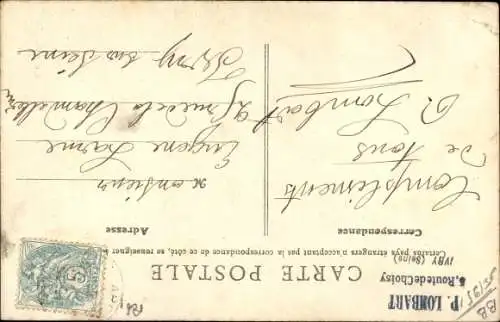 CARTE POSTALE
Certains pays étrangers n'acceptant pas la correspondance de ce côté, se renseigner
P. LOMBART
5, Route de Choisy
IVRY (Seine)
Correspondance
Compliments
De tous
P. Lombart
Adresse
Monsieur
Eugène Larme
rue de la Chandelier
Ivry sur Seine
5